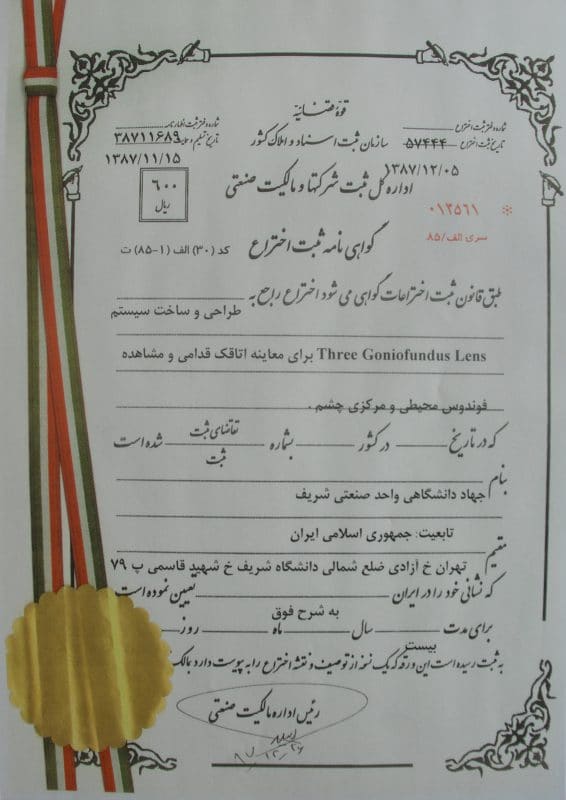 قوۀ قضائیه
سازمان ثبت اسناد و املاک کشور
شماره دفتر ثبت اختراع
تاریخ ثبت اختراع ۵۷۴۴۴
۱۳۸۷/۱۲/۰۵
شماره دفتر ثبت اظهارنامه
تاریخ تسلیم و ۳۸۷۱۱۶۸۹
۱۳۸۷/۱۱/۱۵
اداره کل ثبت شرکتها و مالکیت صنعتی
۶۰۰
ریال
۰۱۲۵۶۱ *
سری الف/۸۵
گواهی نامه ثبت اختراع
کد (۳۰) الف (۱-۸۵) ت
طبق قانون ثبت اختراعات گواهی می شود اختراع راجع به
طراحی و ساخت سیستم
Three Goniofundus Lens برای معاینه اتاقک قدامی و مشاهده
فوندوس محیطی و مرکزی چشم .
که در تاریخ در کشور بشماره تقاضای ثبت شده است
ثبت
بنام
جهاد دانشگاهی واحد صنعتی شریف
تابعیت: جمهوری اسلامی ایران
مقیم
تهران خ آزادی ضلع شمالی دانشگاه شریف خ شهید قاسمی پ ۷۹
که نشانی خود را در ایران تعیین نموده است
به شرح فوق
برای مدت سال ماه روز
بیست
به ثبت رسیده است این ورقه که یک نسخه از توصیف و نقشه اختراع را به پیوست دارد بمالک
رئیس اداره مالکیت صنعتی